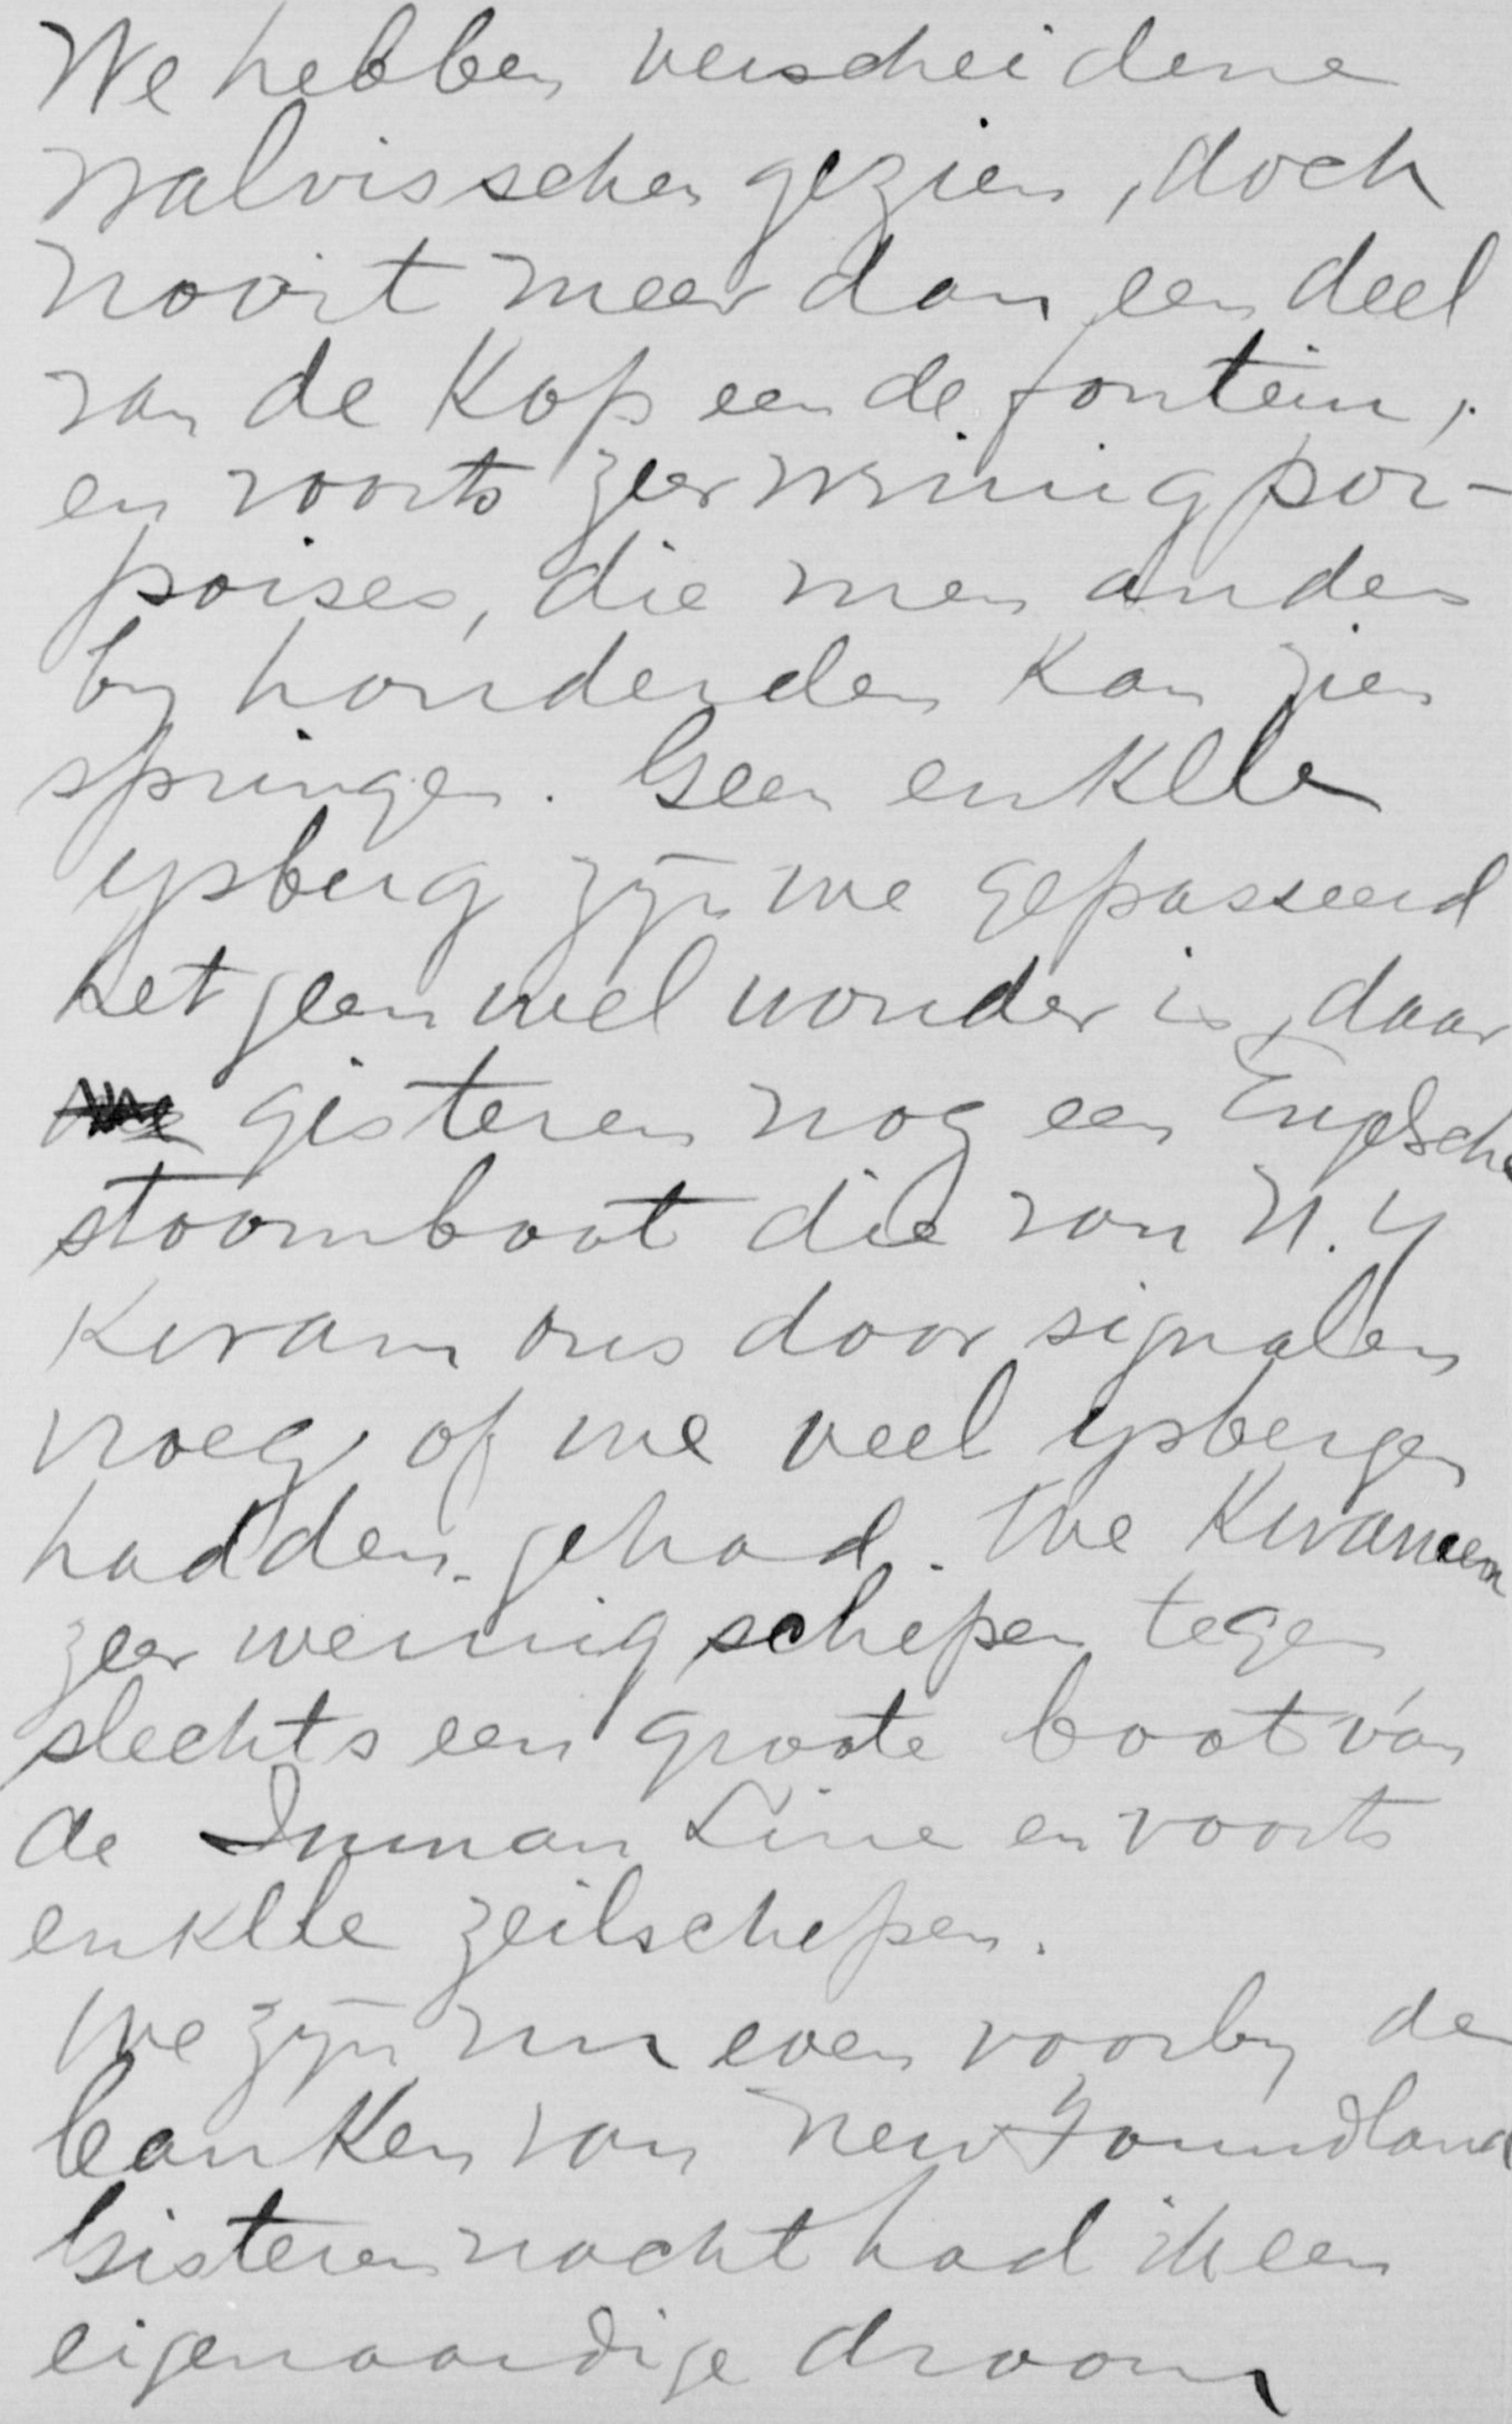 We hebben verscheidene
walvisschen gezien, doch
nooit meer dan een deel
van de kop een de fontein,
en voorts zeer weinig por-
poises, die men anders
by honderden kan zien
springen. Geen enkele
ysberg zyn we gepasseerd
hetgeen wel wonder is, daar
gisteren nog een Engelsche
stoomboot die van N.Y
kwam ons door signalen
vroeg of we veel ysbergen
hadden gehad. We kwamen
zeer weinig schepen tegen
slechts een groote boot van
de Inman Line en voorts
enkele zeilschepen.
We zyn nu even voorby de
banken van New Foundland
Gisteren nacht had ik een
eigenaardige droom